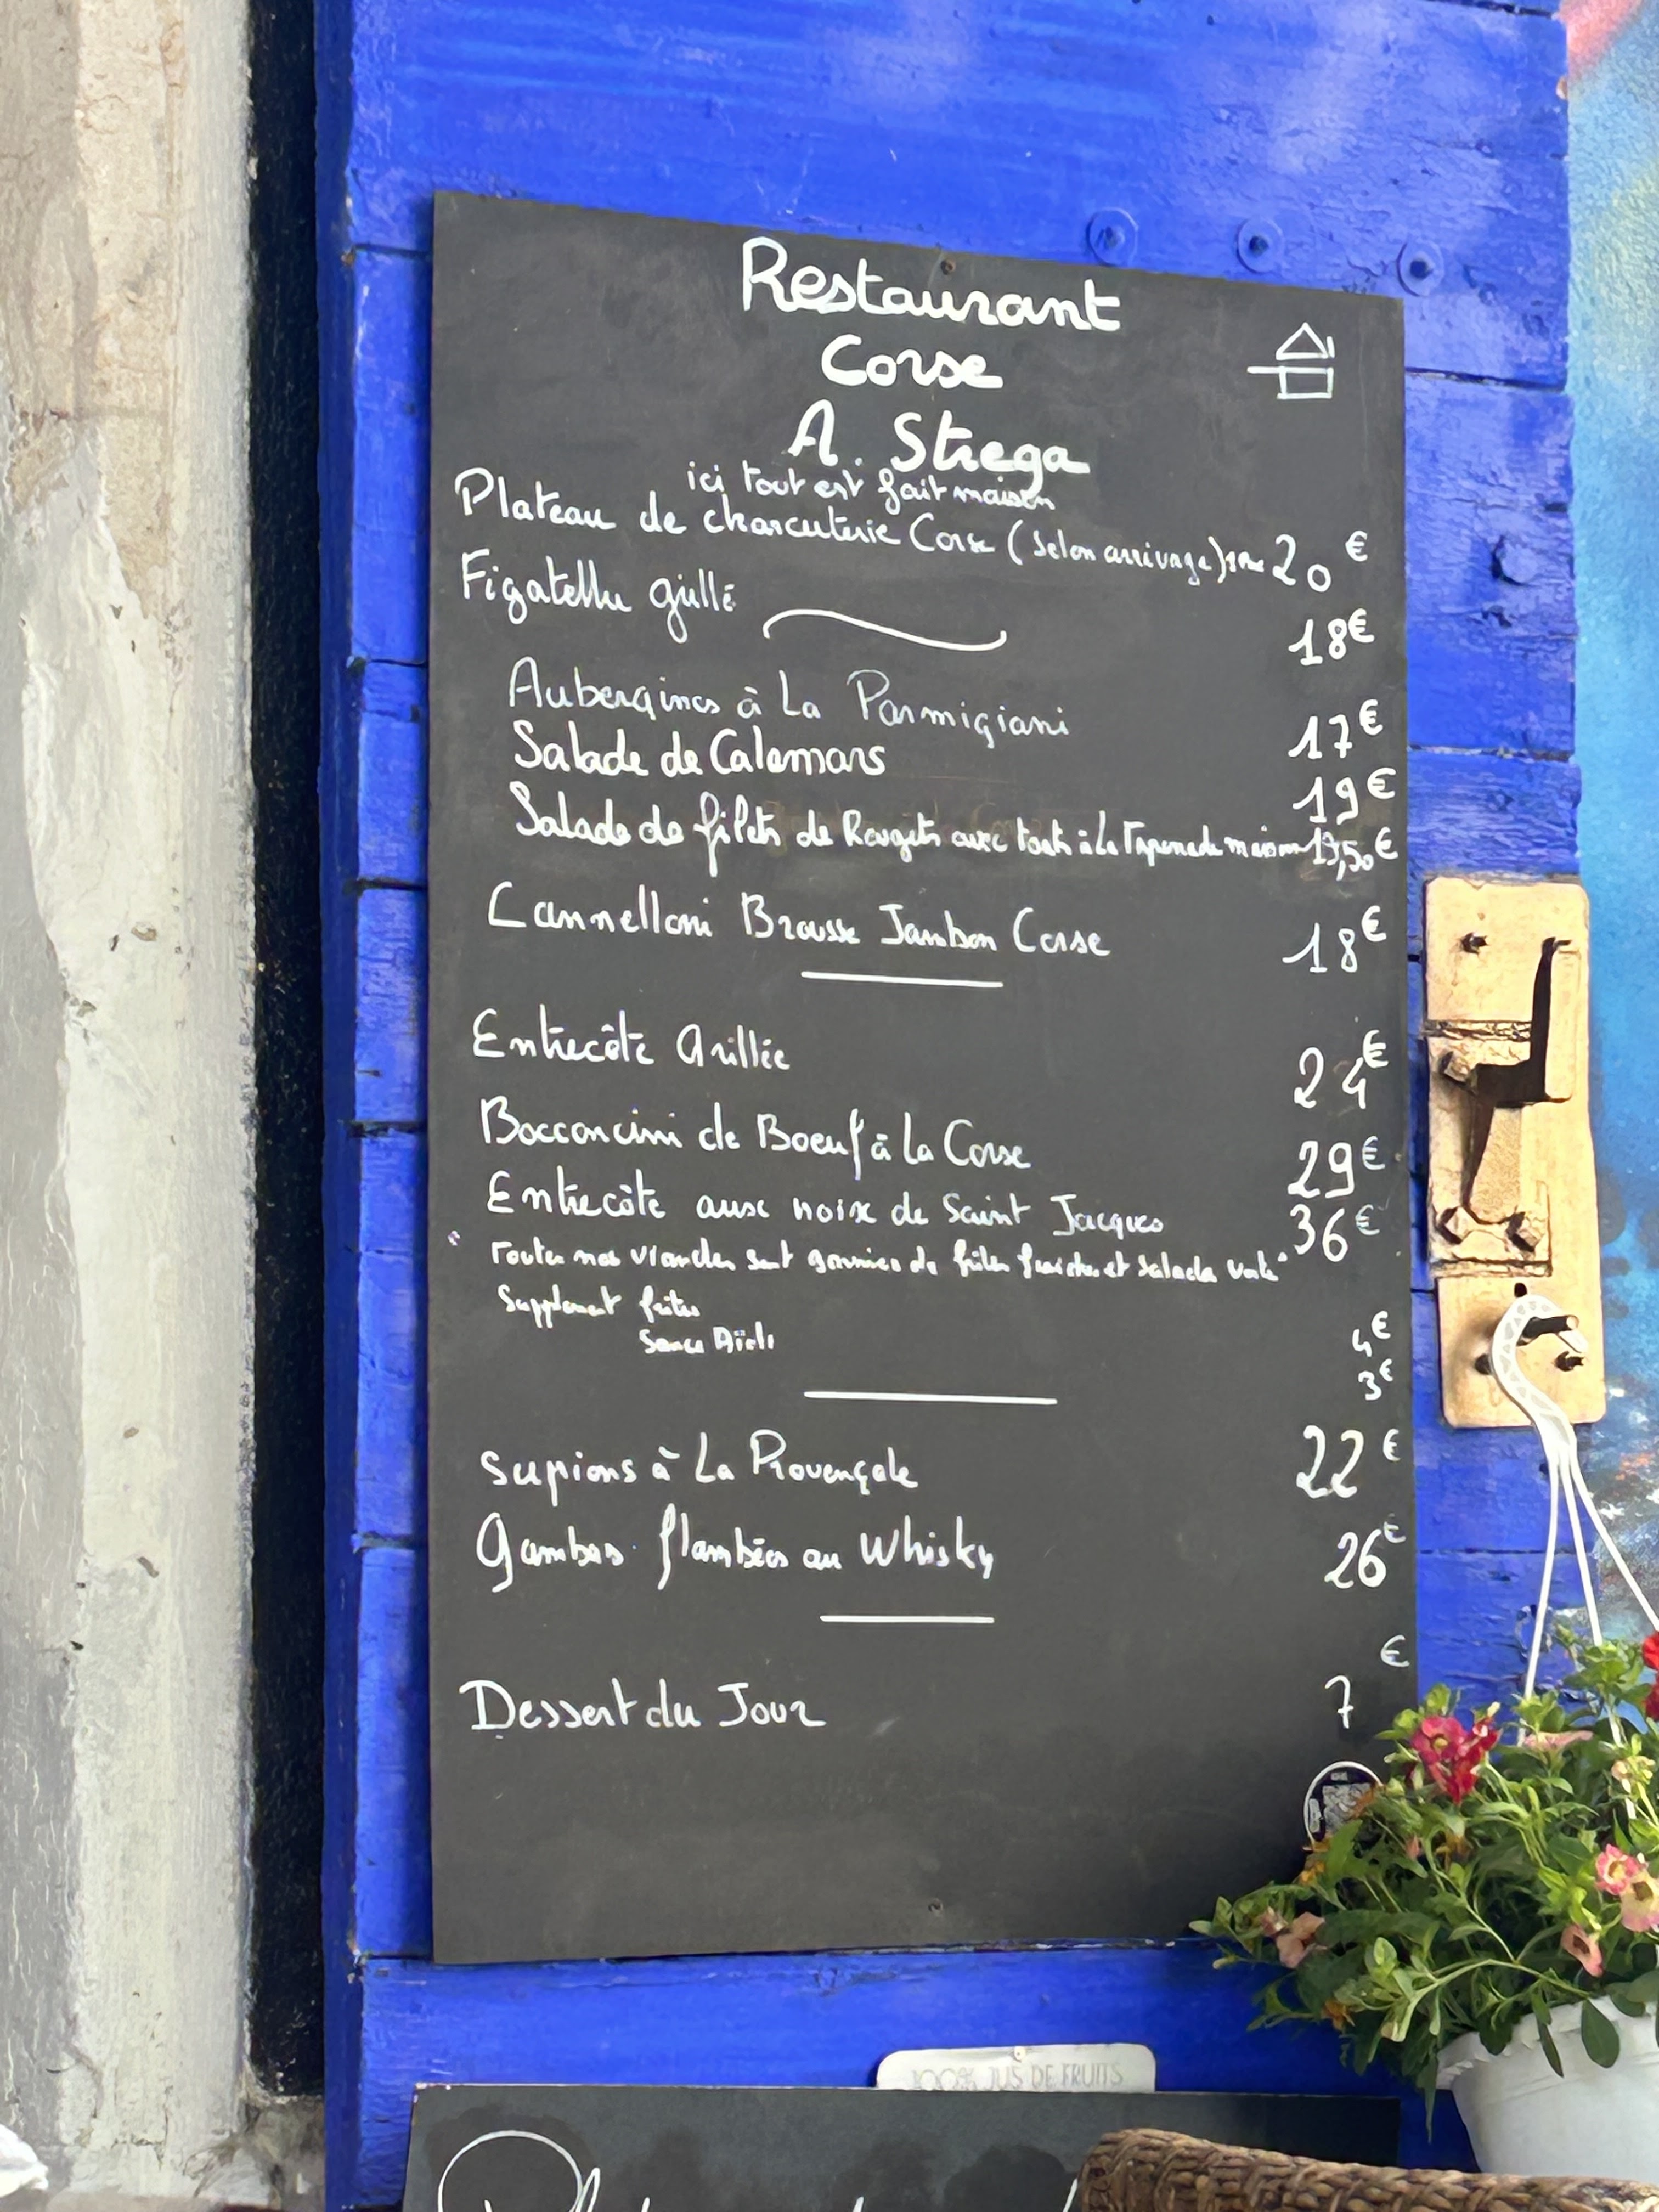 Restaurant
Corse
A Strega
ici tout est fait maison
Plateau de charcuterie Corse (Selon arrivage) 20 €
Figatellu grillé 18€
Aubergines à La Parmigiani 17€
Salade de Calamars 19€
Salade de filets de Rougets avec toast à la Tapenade maison 19,50€
Cannelloni Brousse Jambon Corse 18€
Entrecôte Grillée 24€
Bocconcini de Boeuf à La Corse 29€
Entrecôte aux noix de Saint Jacques 36€
"Toutes nos viandes sont garnies de frites fraiches et salade verte"
Supplement frites 4€
Sauce Aïoli 3€
Supions à La Provençale 22€
Gambas flambées au Whisky 26€
Dessert du Jour 7€
100% JUS DE FRUITS